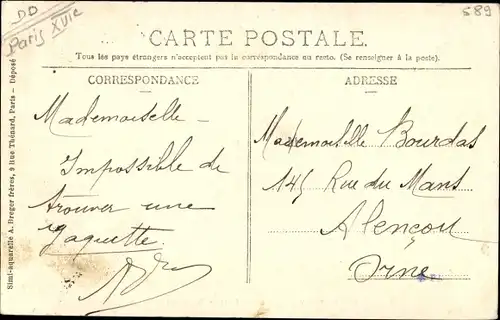 DD
Paris XVIe
589
CARTE POSTALE.
Tous les pays étrangers n'acceptent pas la correspondance au recto. (Se renseigner à la poste).
CORRESPONDANCE
Mademoiselle –
Impossible de
trouver une
jaquette.
ADRESSE
Mademoiselle Bourdas
145 Rue du Mans
Alençon
Orne
Simi-aquarelle A. Breger frères, 9 Rue Thénard, Paris – Déposé